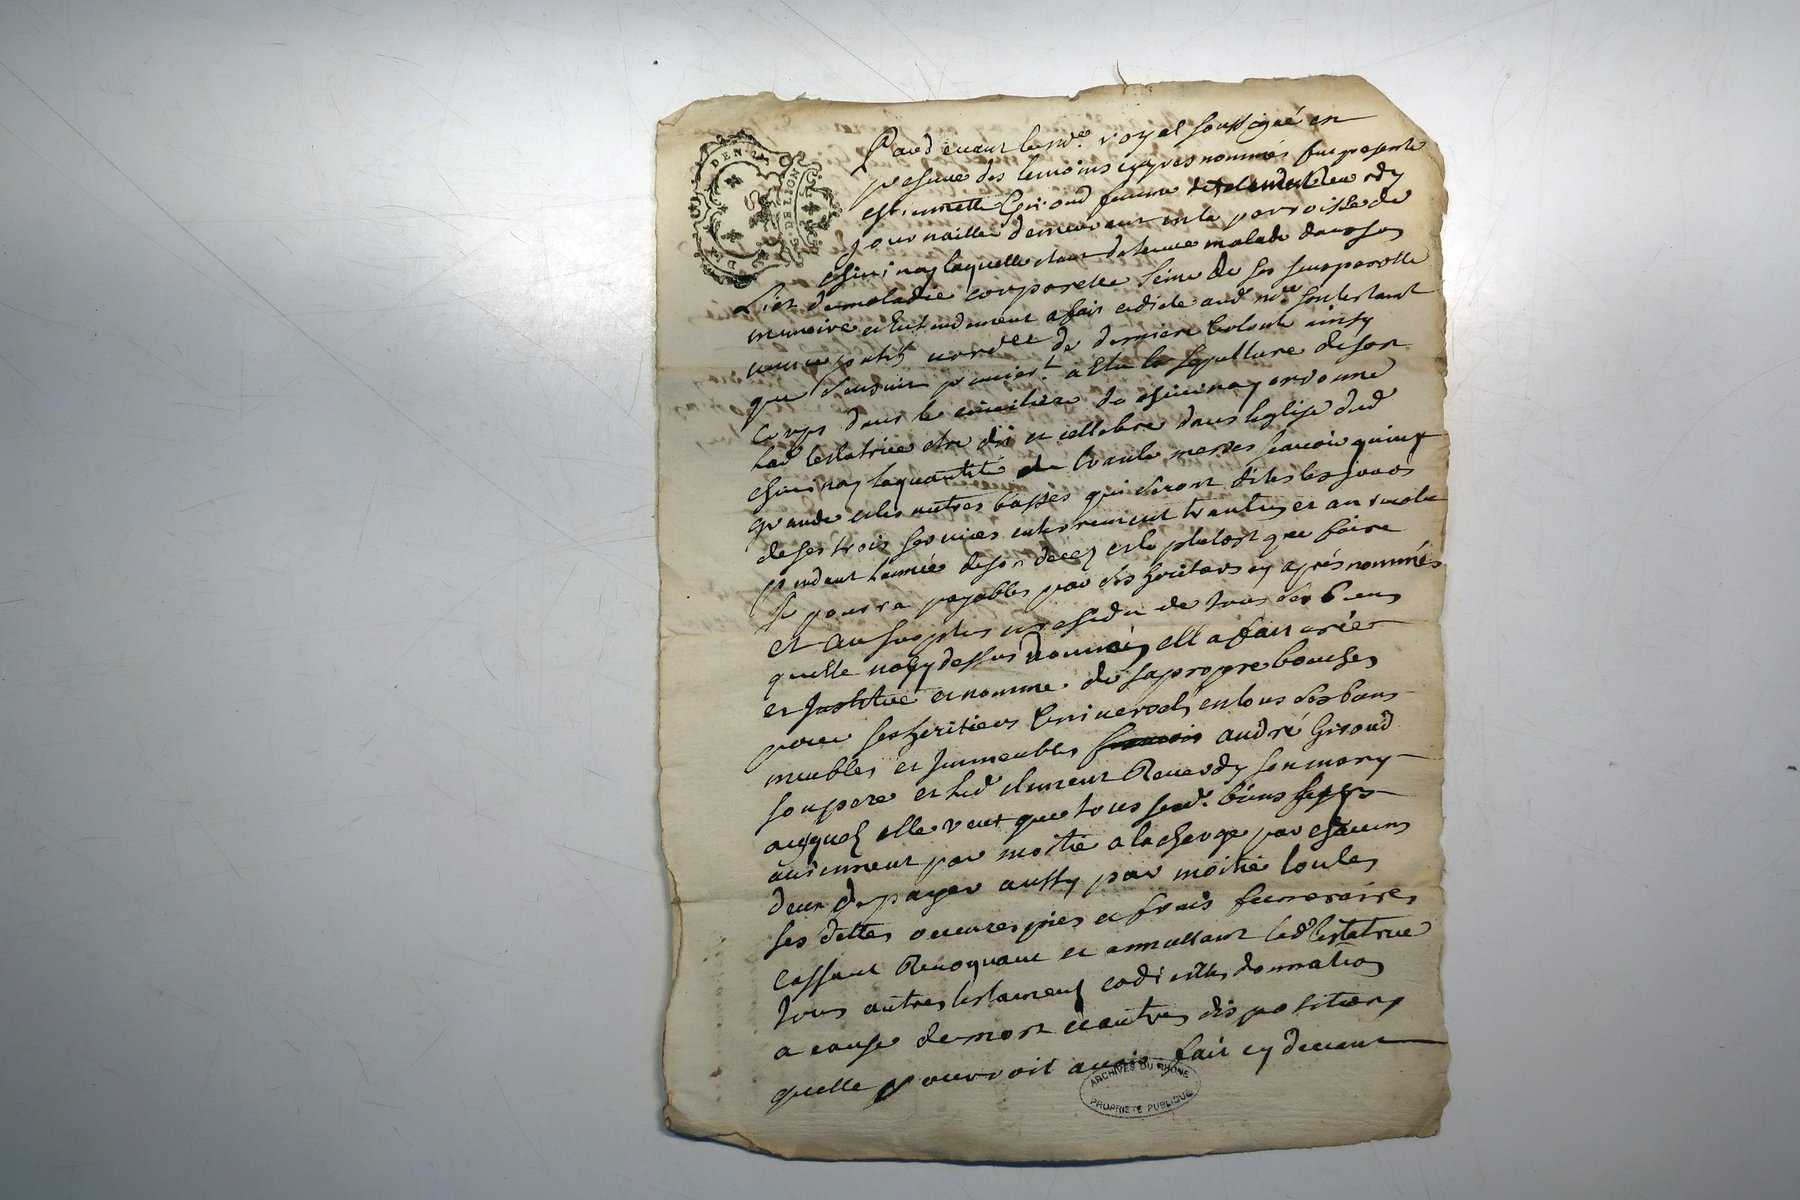 G. DE LION
Pard evant le no.re royal soussigné en
presence des temoins cy apres nommés fut presente
estiennette Giroud femme de clement Reverdy
journailler demeurant en la parroisse de
chirinay laquelle etant detenue malade dans son
lict de maladie corporelle seine de ses sens parolle
memoire et entendement a fait et dicté aud no.re son testament
nuncupatif de derniere volonté ainsy
que s'ensuit premier.t a elu la sepulture de son
corps dans le cimetiere de chirinay ordonne
lad testatrice etre dit et cellebré dans leglise dud
chirinay la quantité de trante messes scavoir quinze
grande et les autres basses qui seront dites les jours
de ses trois services enterrement trantin et au
pendant lannée de son decez et le plutost que faire
se pourra payables par ses heritiers cy après nommés
et au surplus et residu de tous ses biens
quelle na cy dessus donnés ell a fait créé
et Institué et nommé de sa propre bouche
pour ses heritiers universels en tous ses biens
meubles et Immeubles andré Giroud
son pere et led clement Reverdy son mary
ausquels elle veut que tous sesd. biens
aviennent par moitié a la charge par chacuns
deux de payer aussy par moitié toutes
ses dettes oeuvres pies et frais funeraires
cassant Revoquant et annullant lad testatrice
tous autres testaments codicilles donnation
a cause de mort et autres dispositions
quelle pourroit avoir fait cy devant
ARCHIVES DU RHONE
PROPRIETE PUBLIQUE